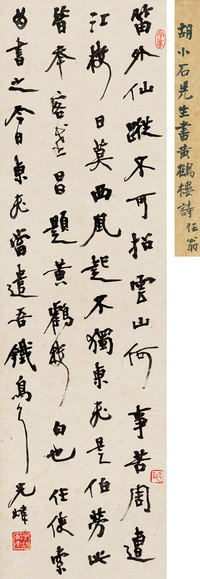 胡小石先生書黃鶴樓詩 任翁
笛外仙蹤不可招雲山何事苦周遭
江樓日莫西風起不獨東飛是伯勞此
昔年客武昌題黃鶴樓 也任使索
為書之今日東飛當遣吾鐵鳥 光煒